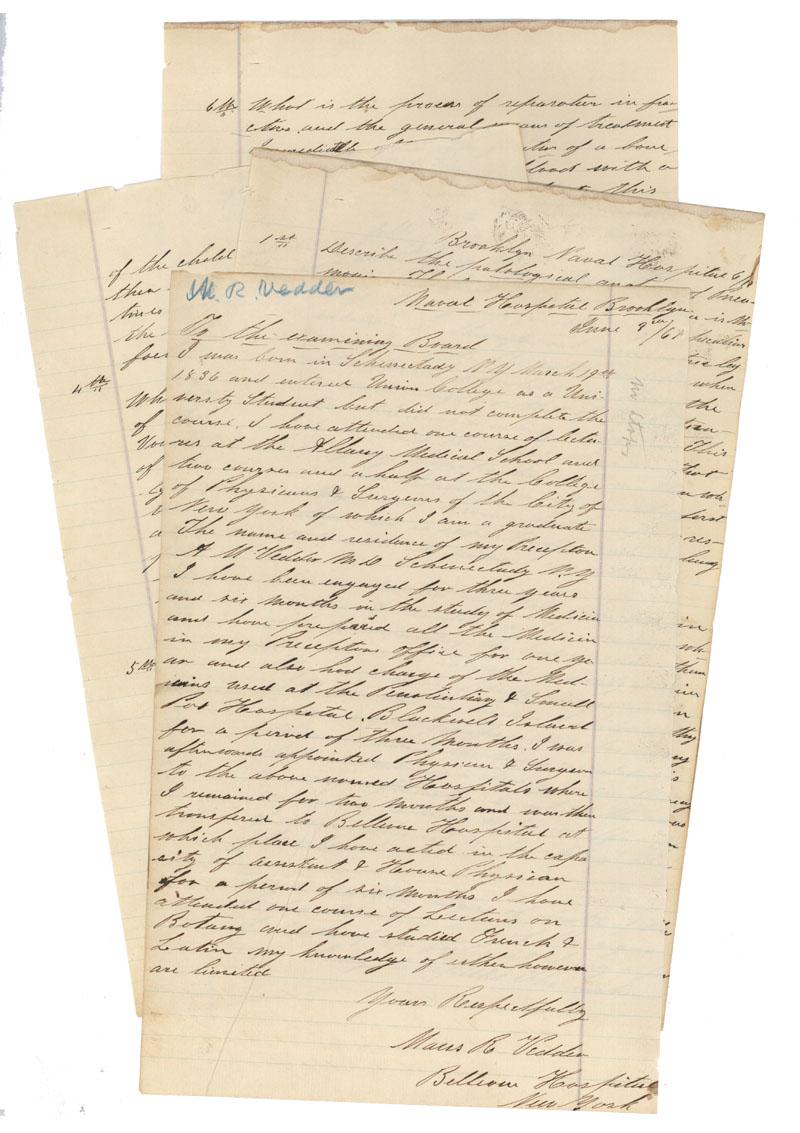 6th What is the process of reparation in fra-
cture and the general means of treatment
of a bone
blood with a
this
Brooklyn Naval Hospital 6/
1st Describe the patological anat
of the child
then
times
the
4th
Wh
of
of
5th
M. R. Vedder
Naval Hospital Brooklyn
June 9th/61
To the examining Board
I was born in Schenectady NY March 19th
1836 and entered Union College as a Uni-
versty Student but did not complete the
course. I have attended one course of lectu-
res at the Albany Medical School and
two courses and a half at the College
of Physicians & Surgeons of the City of
New York of which I am a graduate
The name and residence of my Preceptor
A M Vedder M D Schenectady N.Y
I have been engaged for three years
and six months in the study of Medicin
and have prepard all the Medicin
in my Preceptors office for one ye-
ar and also had charge of the Med-
icins used at the Penetentiary & Small
Pox Hospital. Blackwells Island
for a period of three months. I was
afterwards appointed Physician & Surgeon
to the above named Hospitals where
I remained for two months and was then
transfered to Bellevue Hospital at
which place I have acted in the capa
city of assistant & House Physician
for a period of six months I have
attended one course of Lectures on
Botany and have studied French &
Latin my knowledge of either however
are limited
Yours Respectfully
Maus R Vedder
Bellevue Hospital
New York
when
the
This
first
res-
in